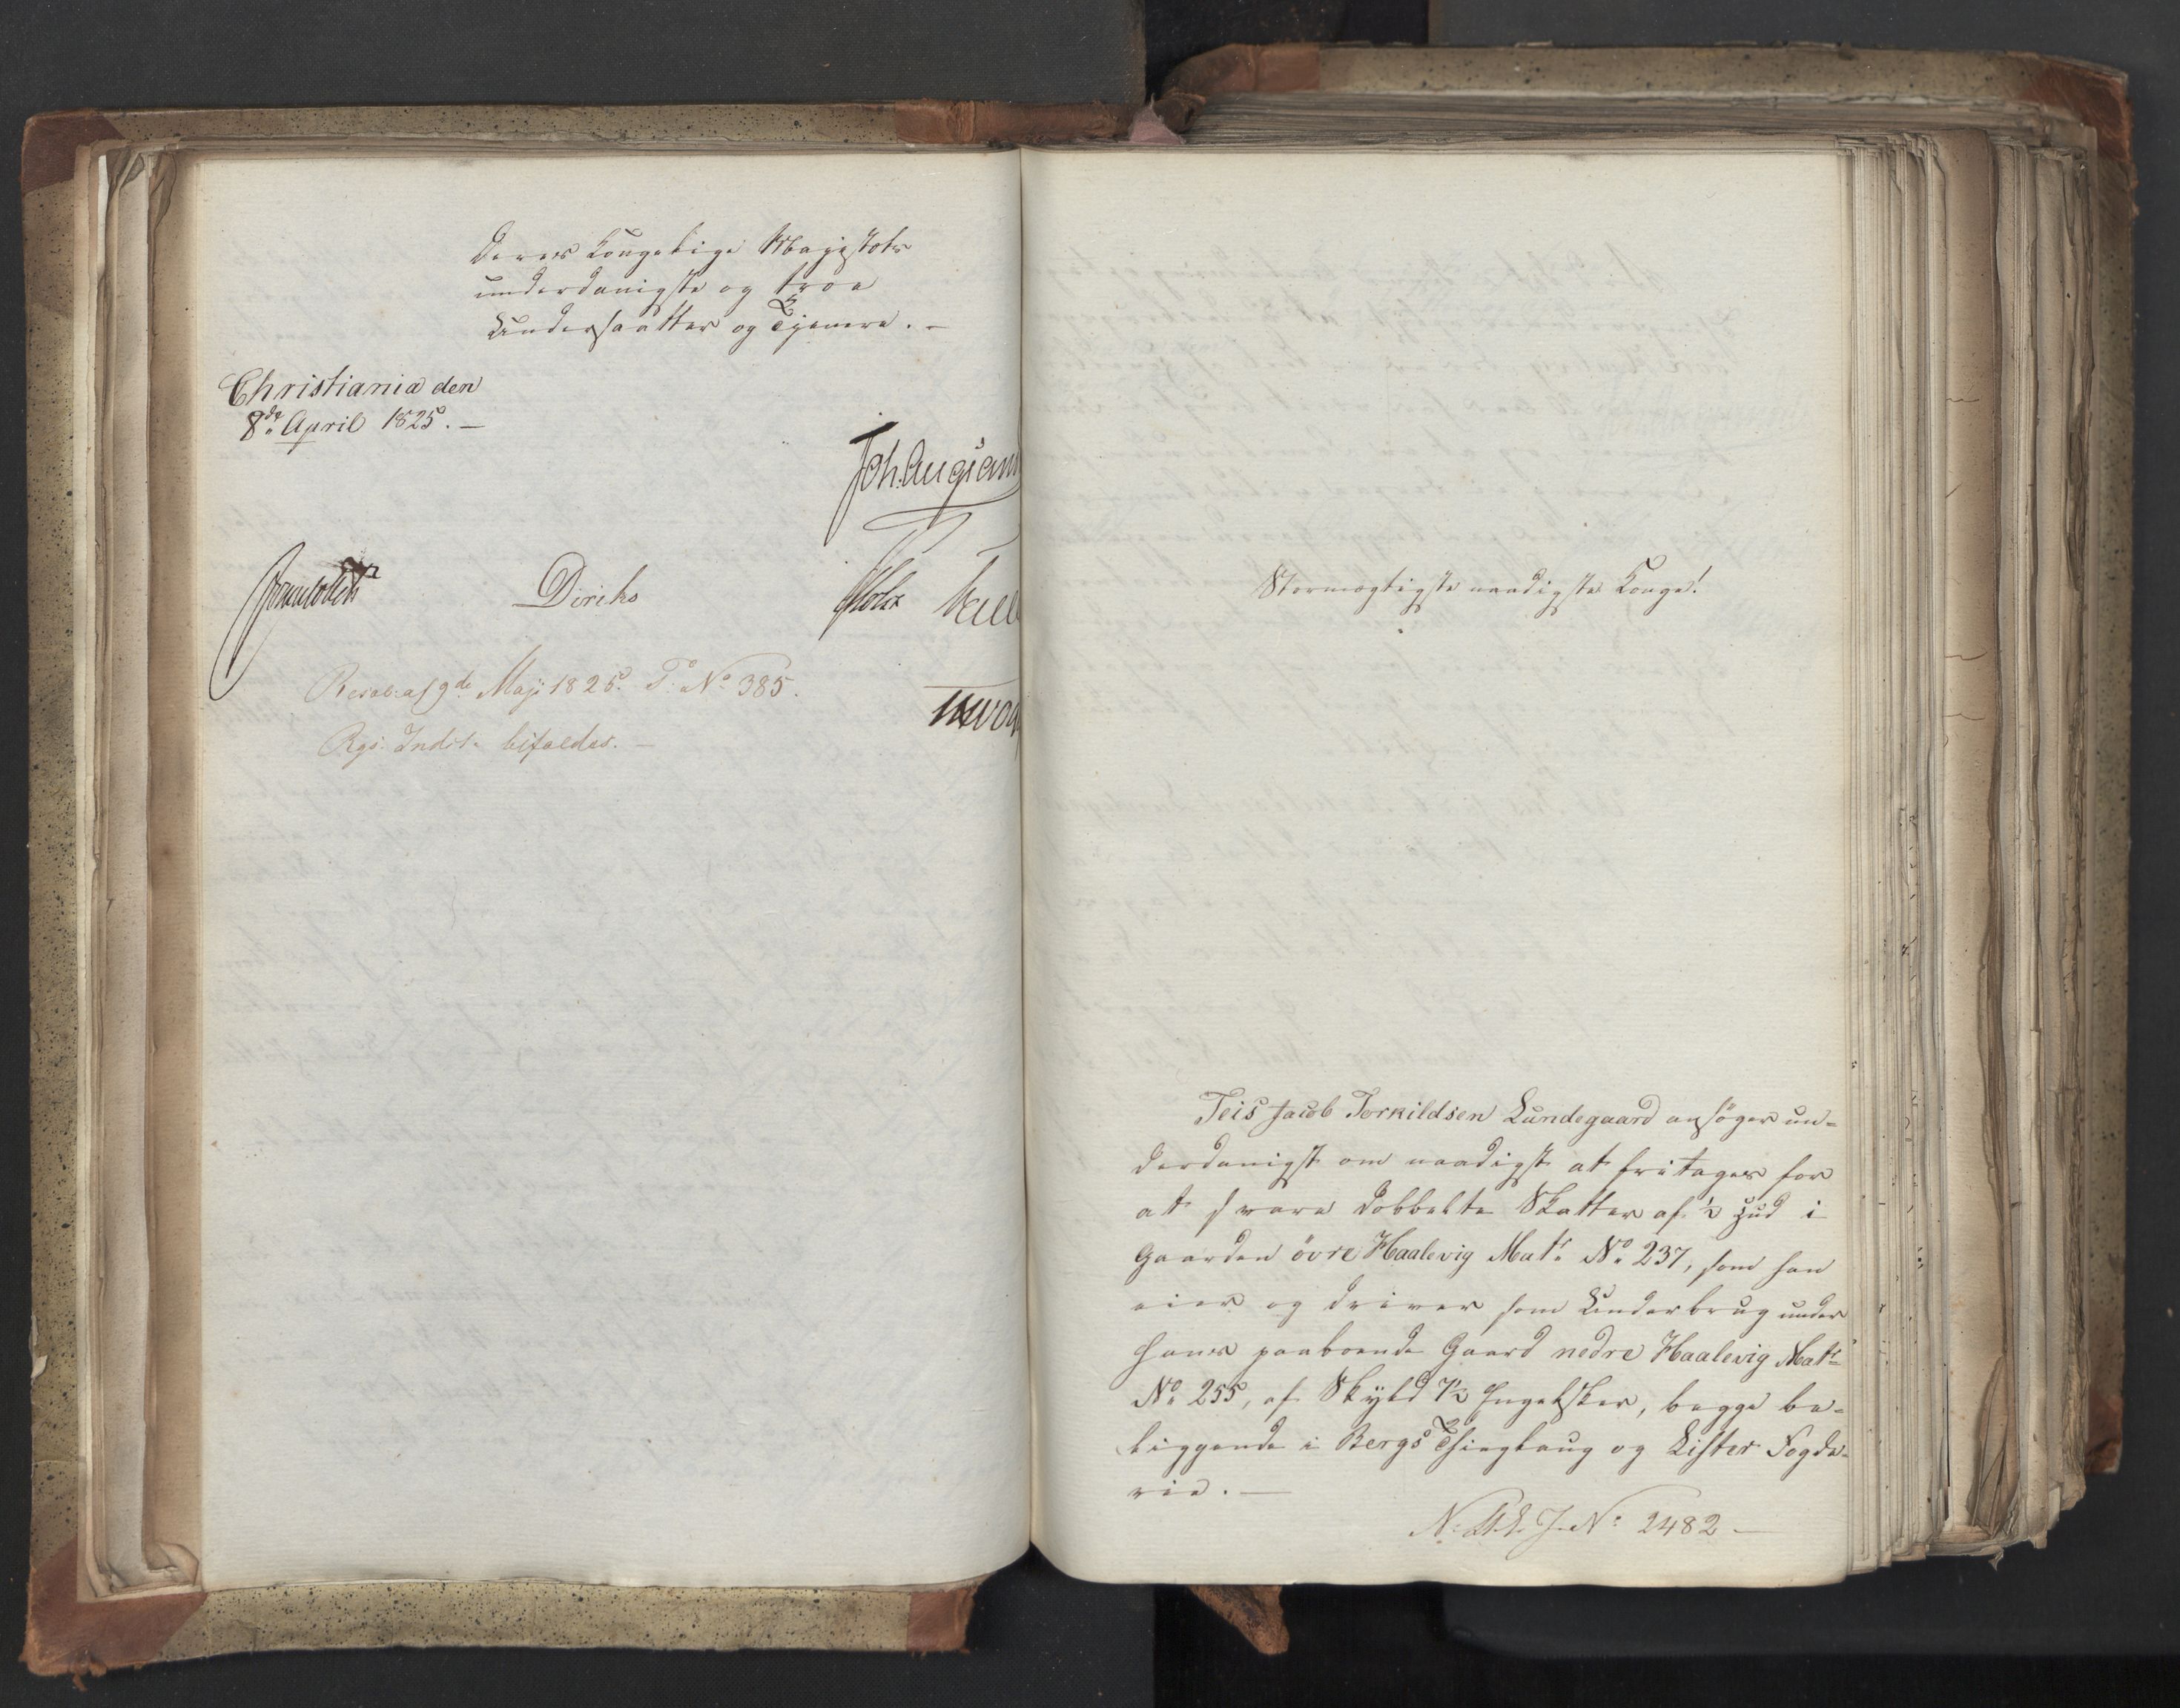 Deres Kongelige Majestæts
underdanigste og troe
Undersaatter og Tjenere. –
Christiania den
8de April 1825. –
Joh. Aug: Sand
Diriks
Holst
Resol: af 9de Maji 1825. T: No 385.
Rgs: Indst. bifaldes. –
Stormægtigste naadigste Konge!
Teis Jacob Torkildsen Lundegaard ansøger un-
derdanigst om naadigst at fritages for
at svare dobbelte Skatter af ½ Hud i
Gaarden övre Haalevig Matr. No 237, som han
eier og driver som Underbrug under
hans paaboende Gaard nedre Haalevig Matr
No 255, af Skyld 7½ Engelsker, begge be-
liggende i Bergs Thinglaug og Lister Fogde-
rie. –
J. No 2482 –